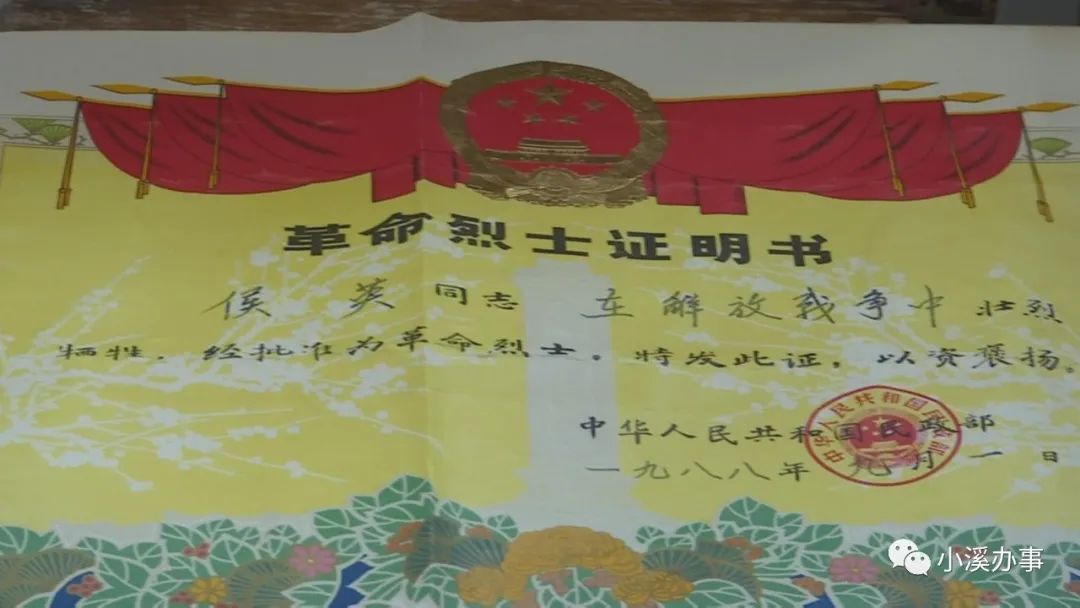 革命烈士证明书
侯英同志 在解放战争中壮烈
牺牲,经批准为革命烈士。特发此证,以资褒扬。
中华人民共和国民政部
一九八八年九月一日
中华人民共和国民政部
小溪办事